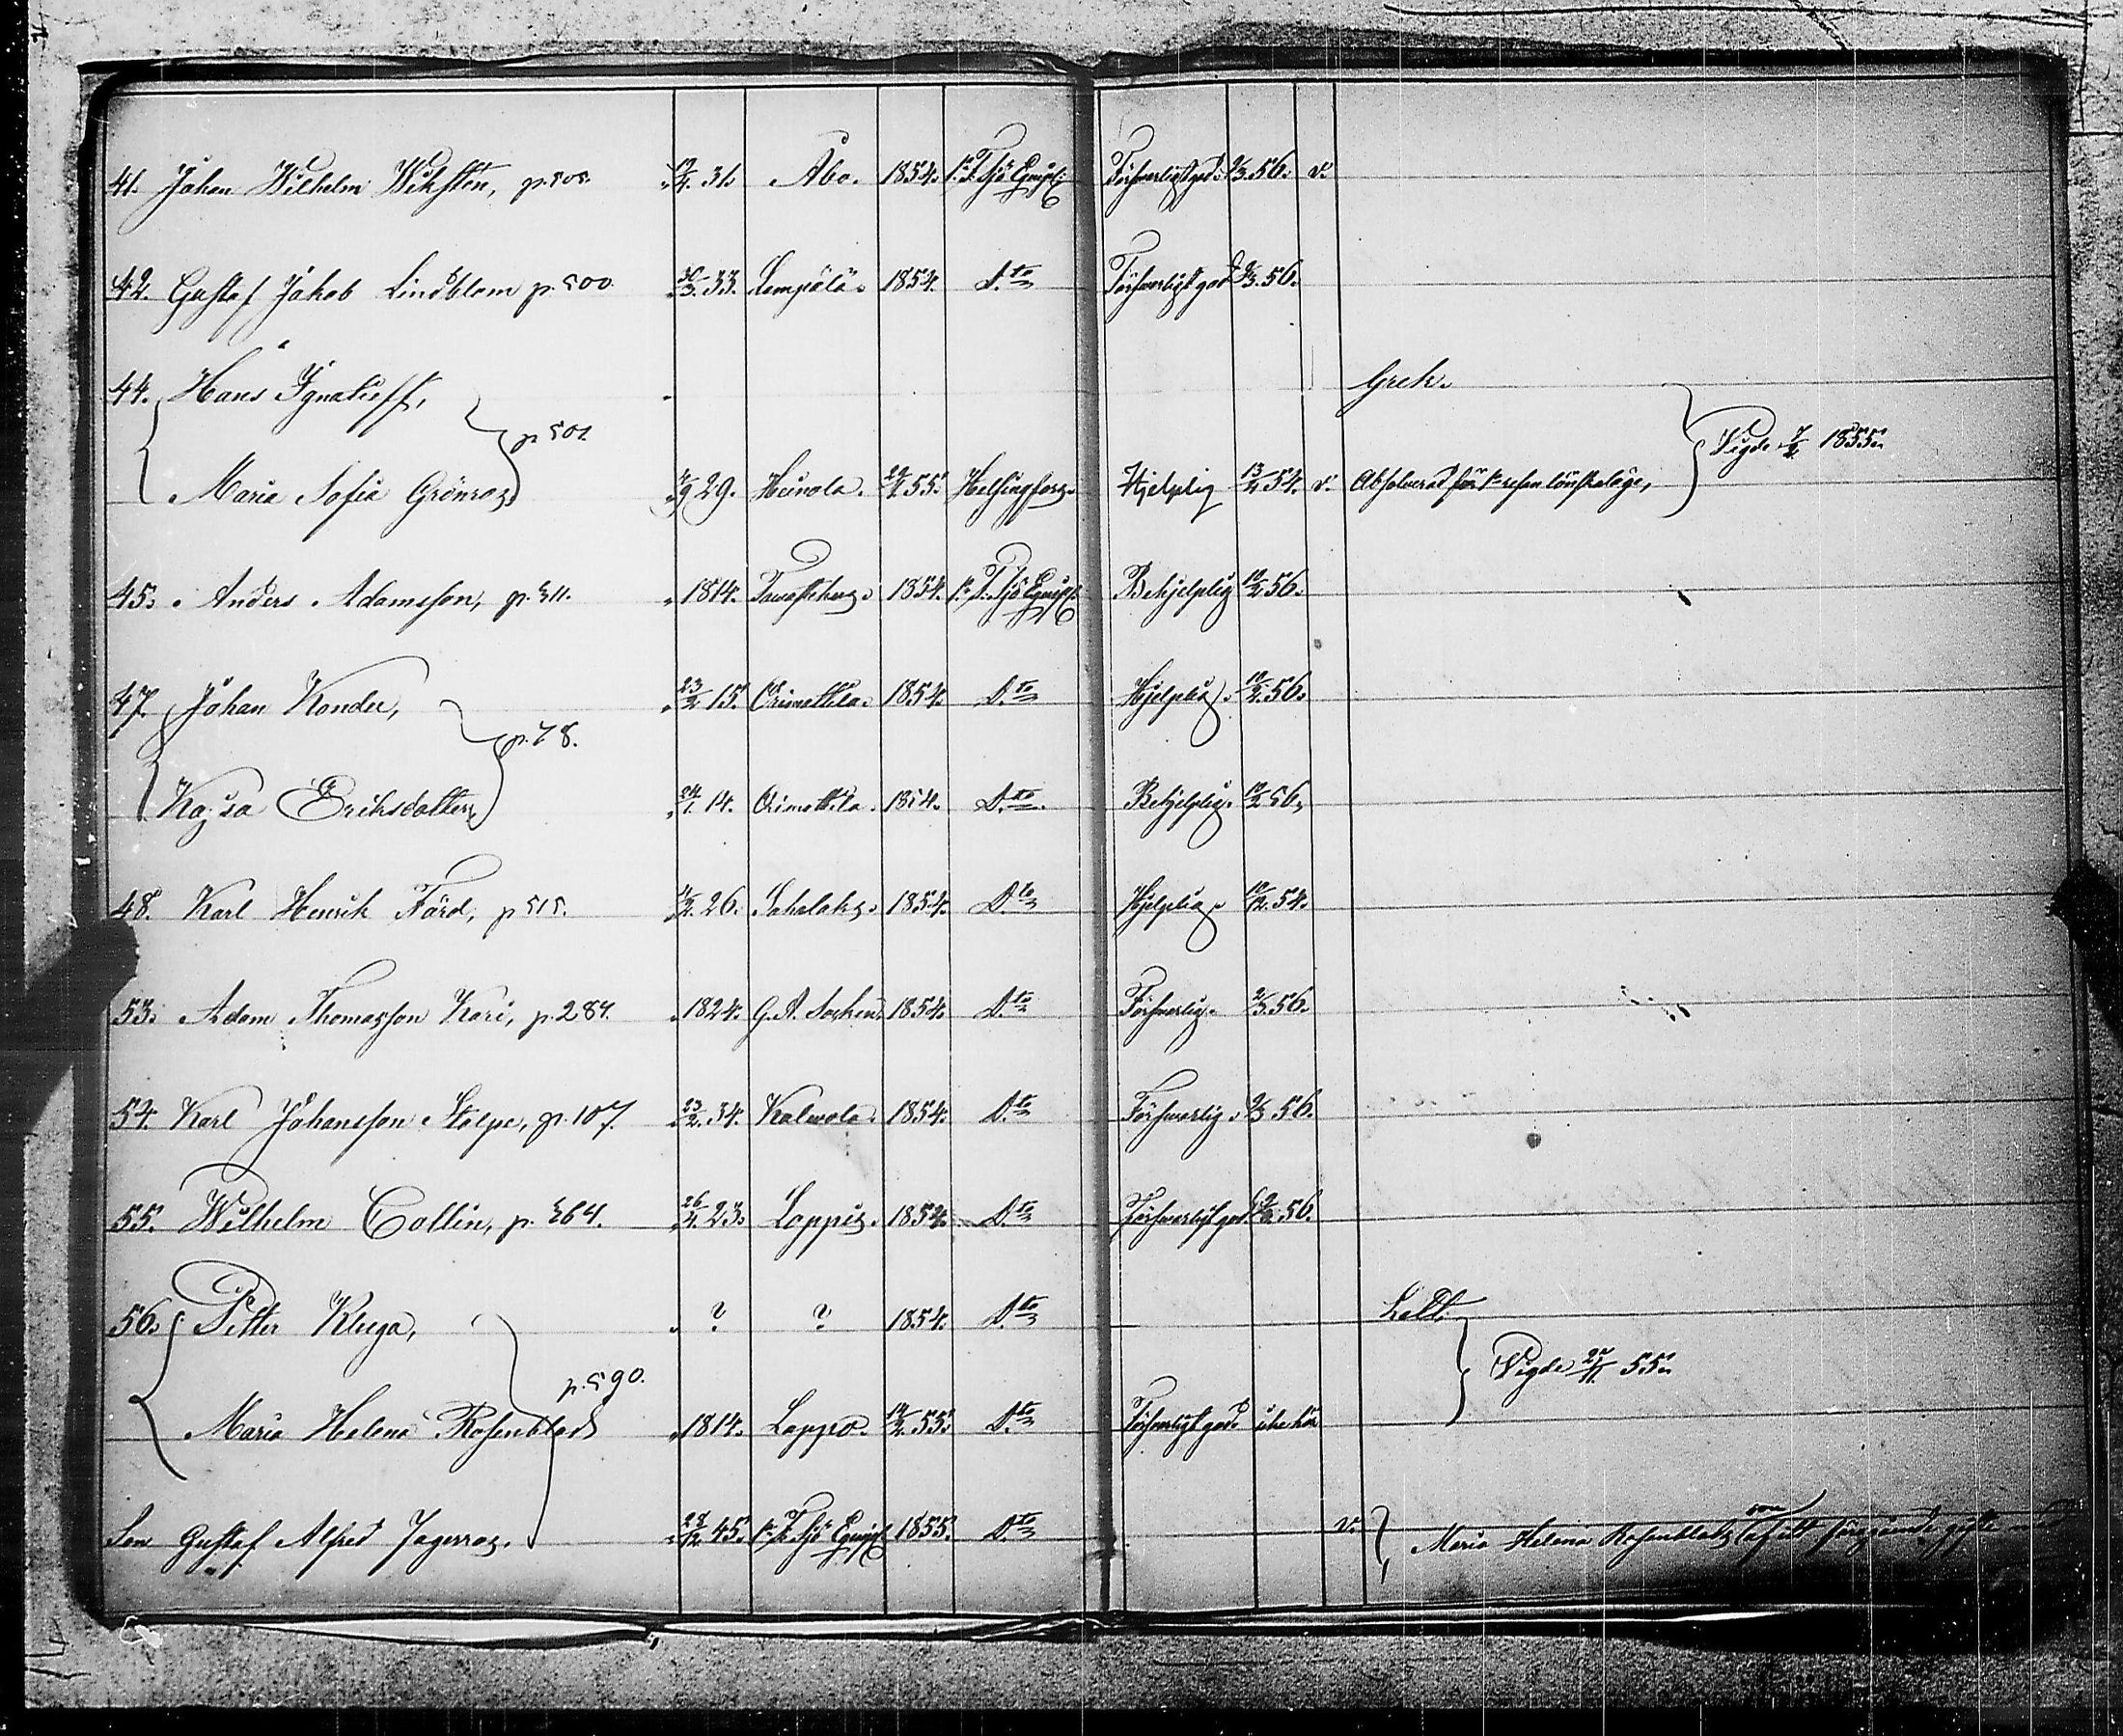 41. Johan Wilhelm Wiksten, p. 505. 19/4. 31. Åbo. 1854. 1:a F. Sjö Equip. Försvarligt god. 2/3. 56. v.
42. Gustaf Jakob Lindblom p. 500. 30/3. 33. Lempälä. 1854. D:to Försvarligt god 2/3. 56.
44. Hans Ignatieff, Grek.
p 501. Vigde 7/2 1855.
Maria Sofia Grönroos 29. Heinola. 55. Helsingfors. Hjelplig 13/2 54. v. Absolverad för lönskaläge,
45. Anders Adamsson, p. 511. 1814. Tavastehus. 1854. 1:a F. Sjö Equip. Behjelplig 10/2 56.
47. Johan Konder, 23/2 15. Orimattila. 1854. D:to Hjelplig. 10/2. 56.
p. 78.
Kajsa Eriksdotter, 24/1. 14. Orimattila. 1854. D:to Behjelplig. 10/2 56.
48. Karl Henrik Färd, p 515. 4/2. 26. Sahalaks. 1854. D:to Hjelplig. 10/2. 54.
53. Adam Thomasson Kari, p. 284. 1824. G. K. Socken 1854. D:to Försvarlig. 2/3. 56.
54. Karl Johansson Stolpe, p. 107. 23/2. 34. Kalvola. 1854. D:to Försvarlig. 2/3 56.
55. Wilhelm Collin, p. 564. 26/2. 23. Loppis. 1854. D:to Försvarligt god. 56.
56. Petter Kluga, ? ? 1854. D:to Lett.
p. 590. Vigde 27/11 55.
Maria Helena Rosenblad 1814. Lappo. 14/2. 55. D:to Försvarligt god. icke här
Son Gustaf Alfred Jagerroos. 28/12. 45. 1:a F. Sjö Equip. 1855. D:to v. Maria Helena Rosenblads son af ett föregående gifte